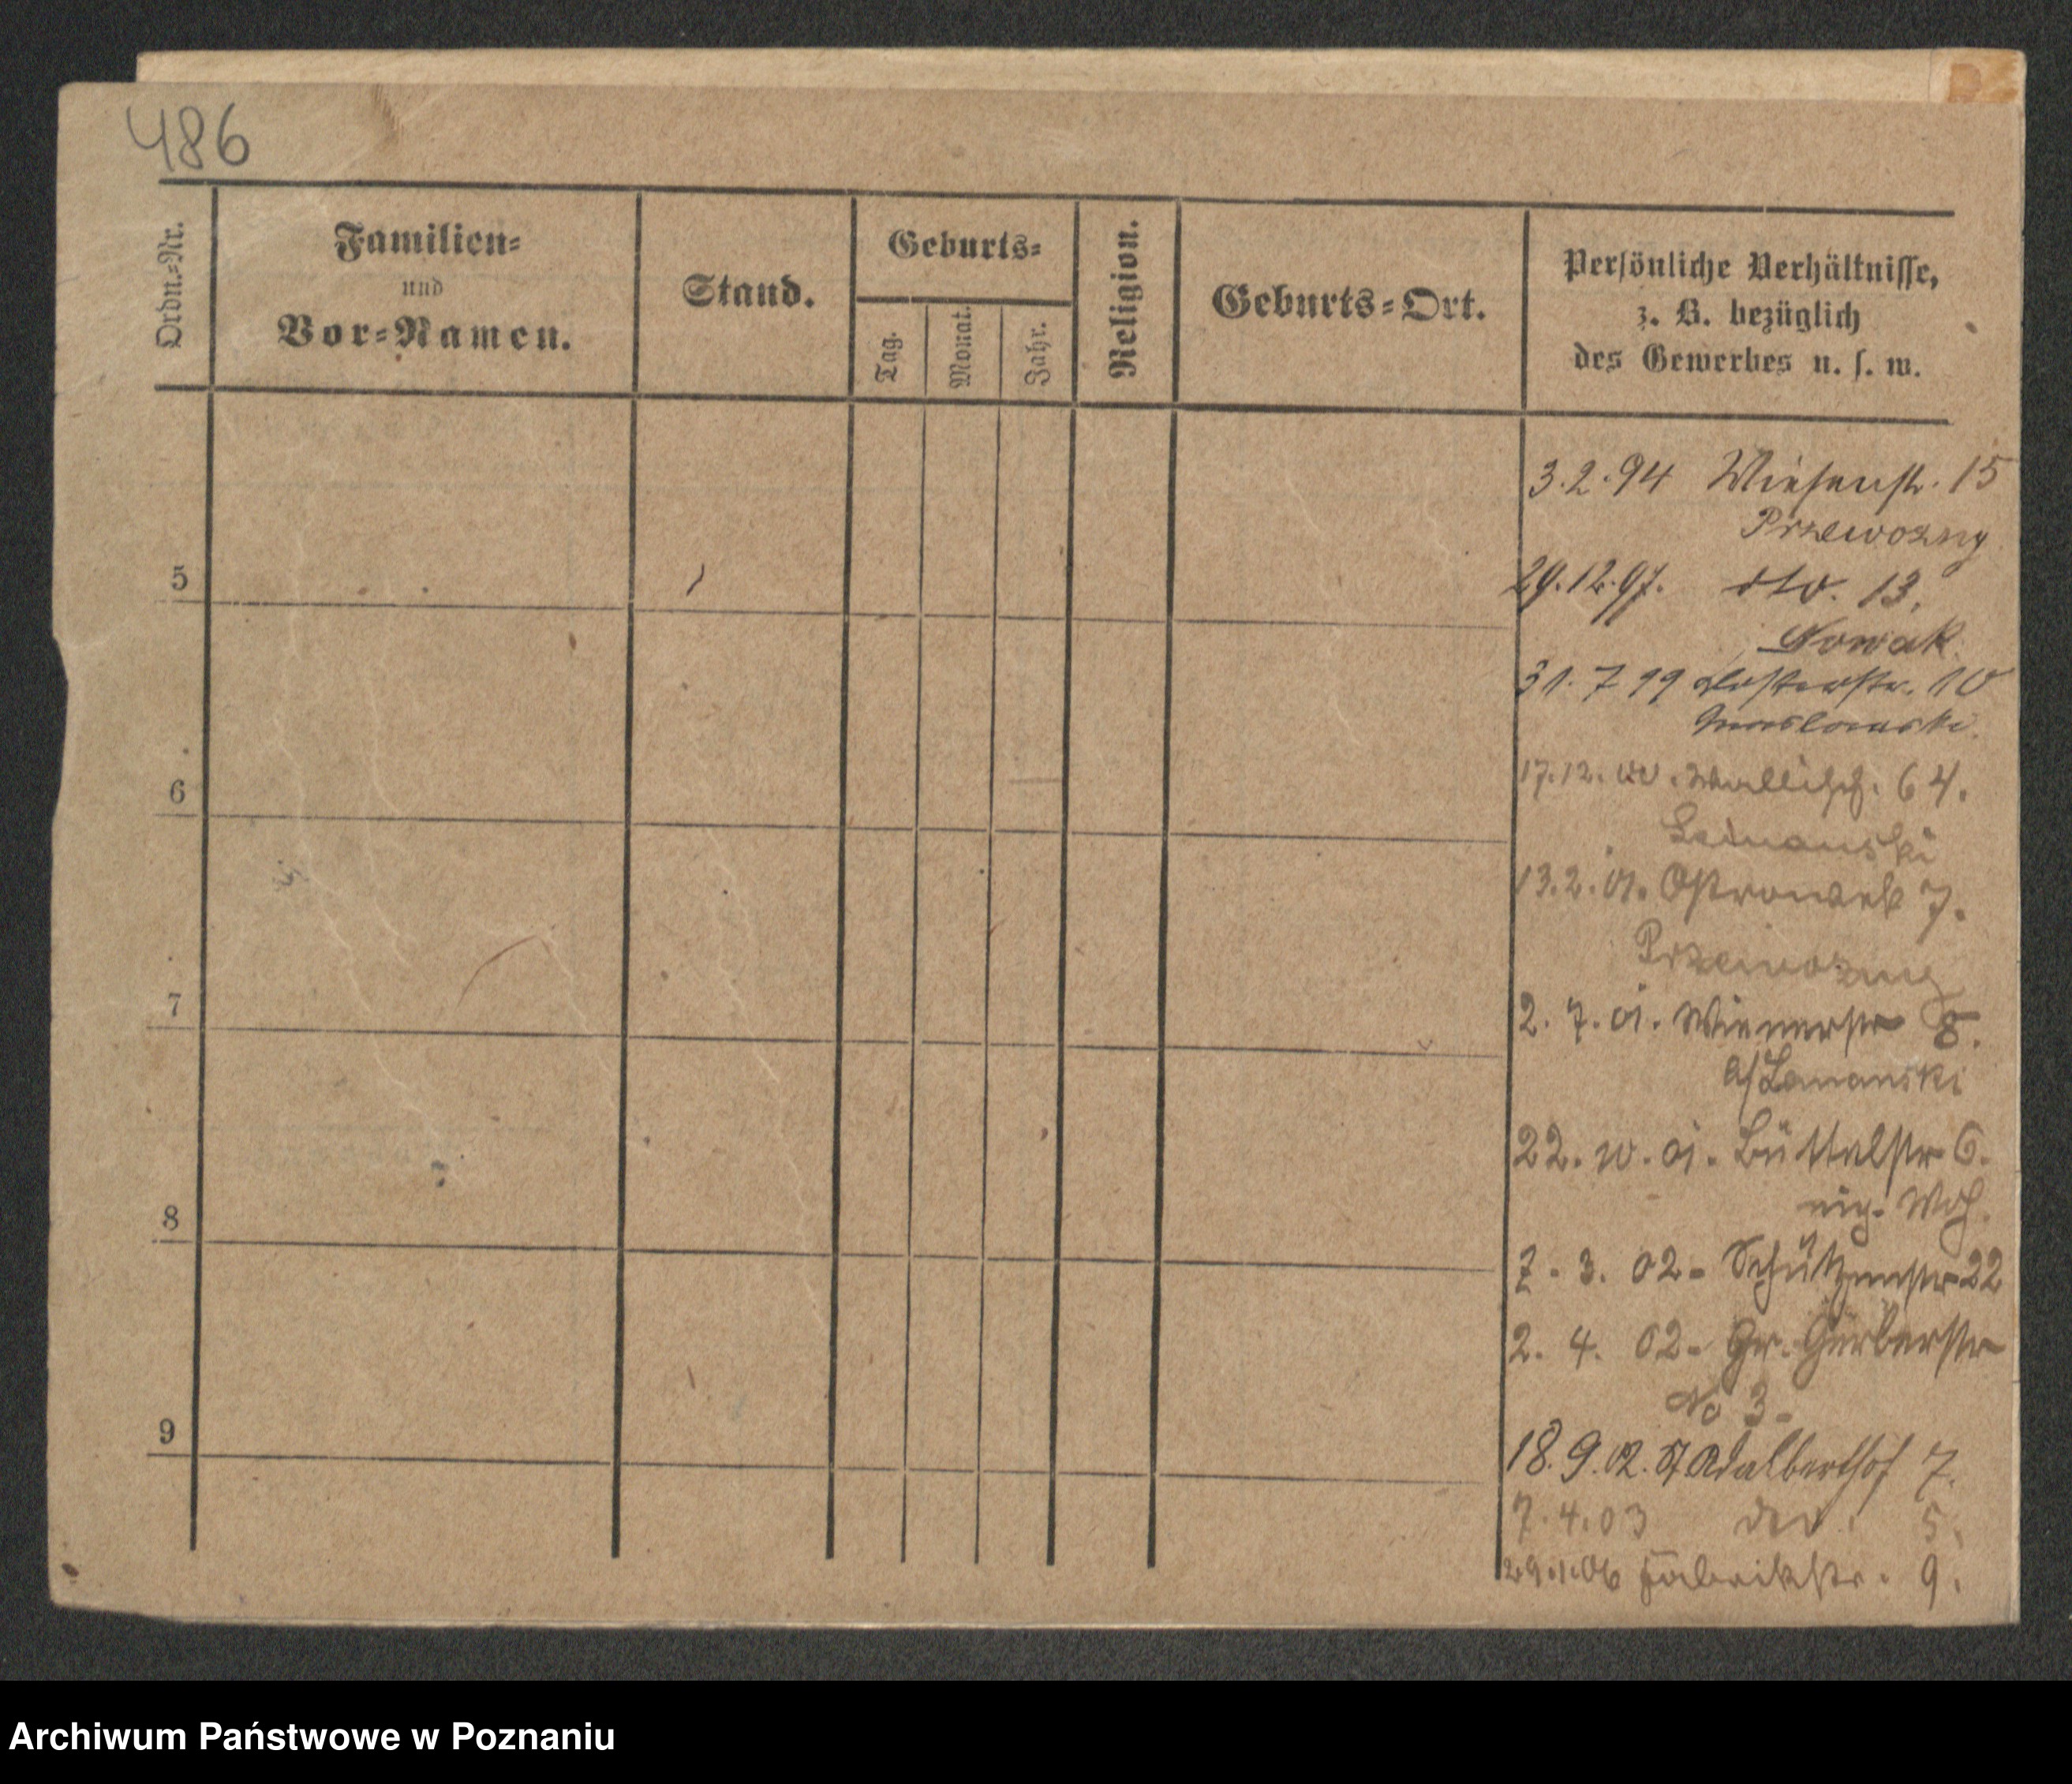 486
Ordn.-Nr.
Familien-
und
Vor-Namen.
Stand.
Geburts-
Tag.
Monat.
Jahr.
Religion.
Geburts-Ort.
Persönliche Verhältnisse,
z. B. bezüglich
des Gewerbes u. s. w.
3.2.94 Wiesenstr. 15
Przewozny
5
29.12.97. dto. 13.
Nowak
31.7 99 Klosterstr. 10
6
17.12.00. Wallisch. 64.
13.2.01. Ostrowek 7.
Przewozny
7
2.7.01. Wienerstr 8.
22.10.01. Büttelstr 6.
eig. Wog.
8
7.3.02- Schützenstr 22
2.4.02- Gr. Gerberstr
No 3-
9
18.9.02. St Adalberthof 7.
7.4.03 dto. 5.
29.1.06 Fabrikstr. 9.
Archiwum Państwowe w Poznaniu